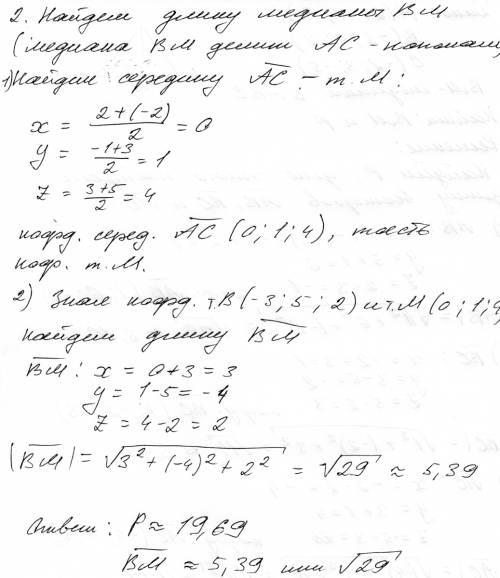 2. Найдем длину медианы ВМ
(медиана ВМ делит АС - пополам,
1) Найдем середину АС - т. М:
x = (2+(-2))/2 = 0
y = (-1+3)/2 = 1
z = (3+5)/2 = 4
коорд. серед. АС (0; 1; 4), тоесть
коор. т. М.
2) Зная коорд. т.В (-3; 5; 2) и т.М (0; 1; 4
найдем длину ВМ
ВМ: x = 0+3 = 3
y = 1-5 = -4
z = 4-2 = 2
|ВМ| = √3²+(-4)²+2² = √29 ≈ 5,39
Ответ: P ≈ 19,69
ВМ ≈ 5,39 или √29